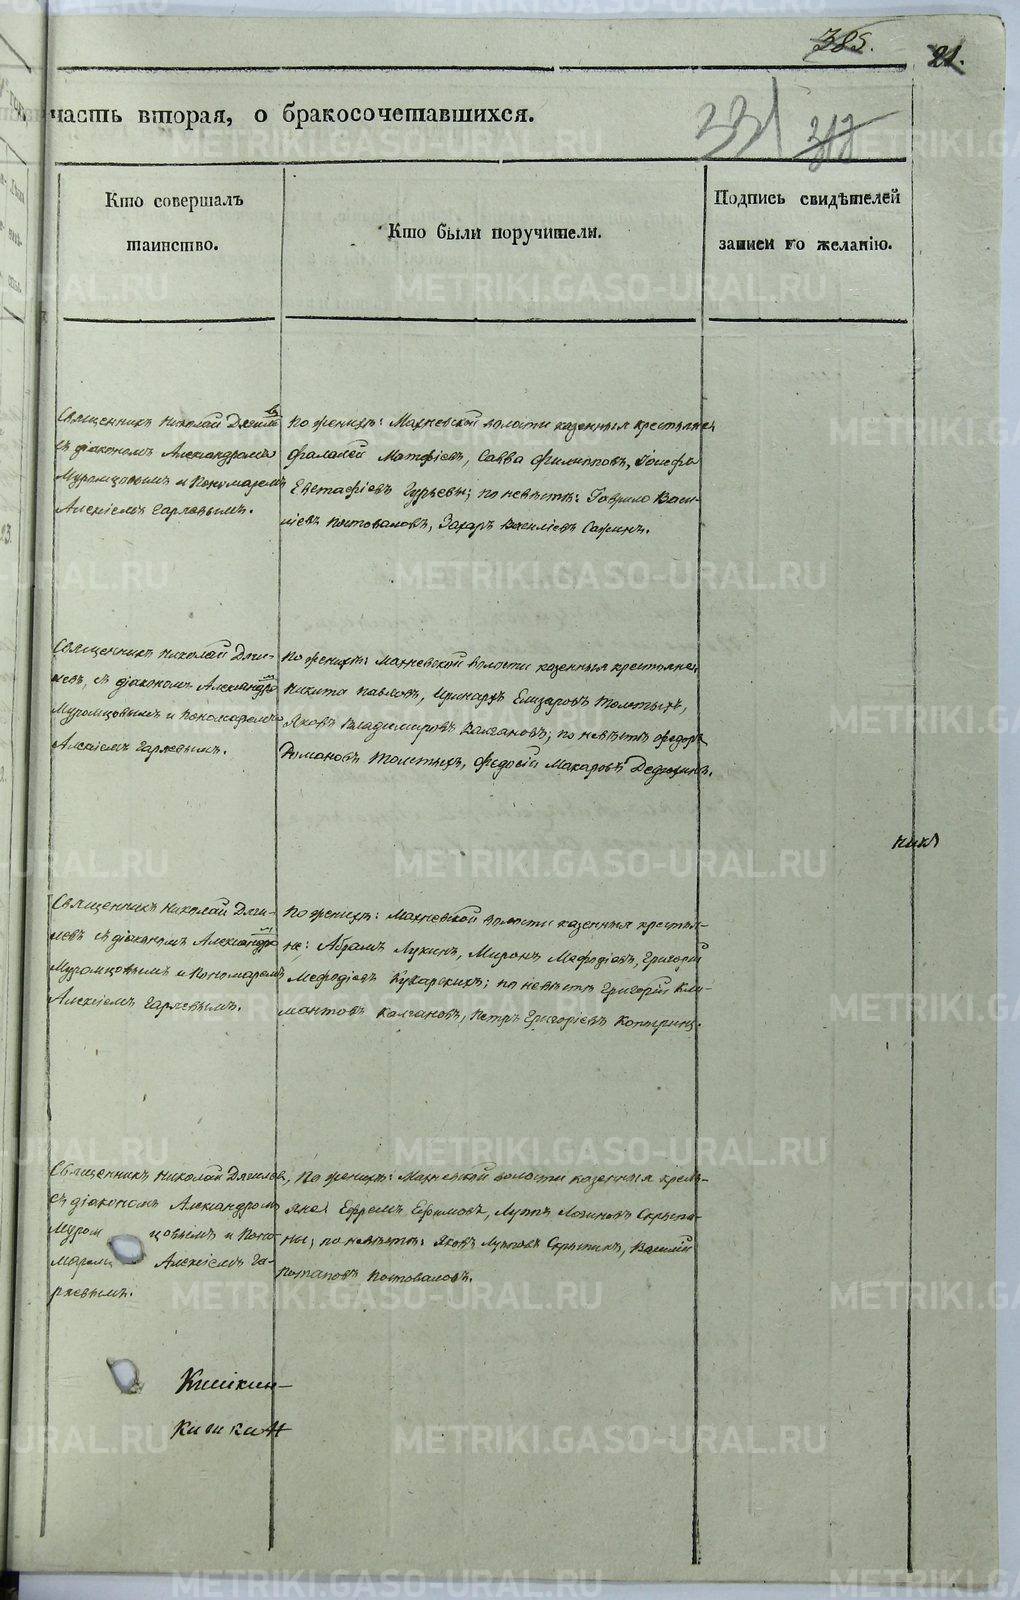 385.
21.
часть вторая, о бракосочетавшихся.
331 317
Кто совершалъ
таинство.
Кто были поручители.
Подпись свидѣтелей
записи по желанію.
Священникъ Николай Дягилевъ
съ діакономъ Александромъ
Муромцовымъ и Пономаремъ
Алексіемъ Гаряевымъ.
По женихѣ: Махневской волости казенныя крестьяне,
Фалалей Матфіевъ, Савва Филипповъ, Іосифъ
Евстафіевъ Гурьевы; по невѣстѣ: Гаврило Васи-
ліевъ Постоваловъ, Захаръ Василіевъ Сажинъ.
Священникъ Николай Дяги-
левъ, съ діакономъ Александро
Муромцовымъ и Пономаремъ
Алексіемъ Гаряевымъ.
По женихѣ: Махневской волости казенныя крестьяне,
Никита Павловъ, Иринархъ Елизаровъ Толстыхъ,
Яковъ Владимировъ Калгановъ; по невѣстѣ Федоръ
Романовъ Толстыхъ, Федосій Макаровъ Дедюхинъ.
Священникъ Николай Дяги-
левъ съ діакономъ Александро
Муромцовымъ и Пономаремъ
Алексіемъ Гаряевымъ.
По женихѣ: Махневской волости казенныя крестья-
не: Абрамъ Лукинъ, Миронъ Мефодіевъ, Григорій
Мефодіевъ Кукарскихъ; по невѣстѣ Григорій Кли-
мантовъ Калгановъ, Петръ Григоріевъ Копыринъ.
ника
Священникъ Николай Дягилевъ,
съ діакономъ Александромъ
Муромцовымъ и Поно-
маремъ Алексіемъ Га-
ряевымъ.
По женихѣ: Махневской волости казенныя кресть-
яне Ефремъ Ефимовъ, Луппъ Логиновъ Скрыпи-
ны; по невѣстѣ: Яковъ Лупповъ Скрыпинъ, Василій
Потаповъ Постоваловъ.
Кишкин
Кишкин
METRIKI.GASO-URAL.RU